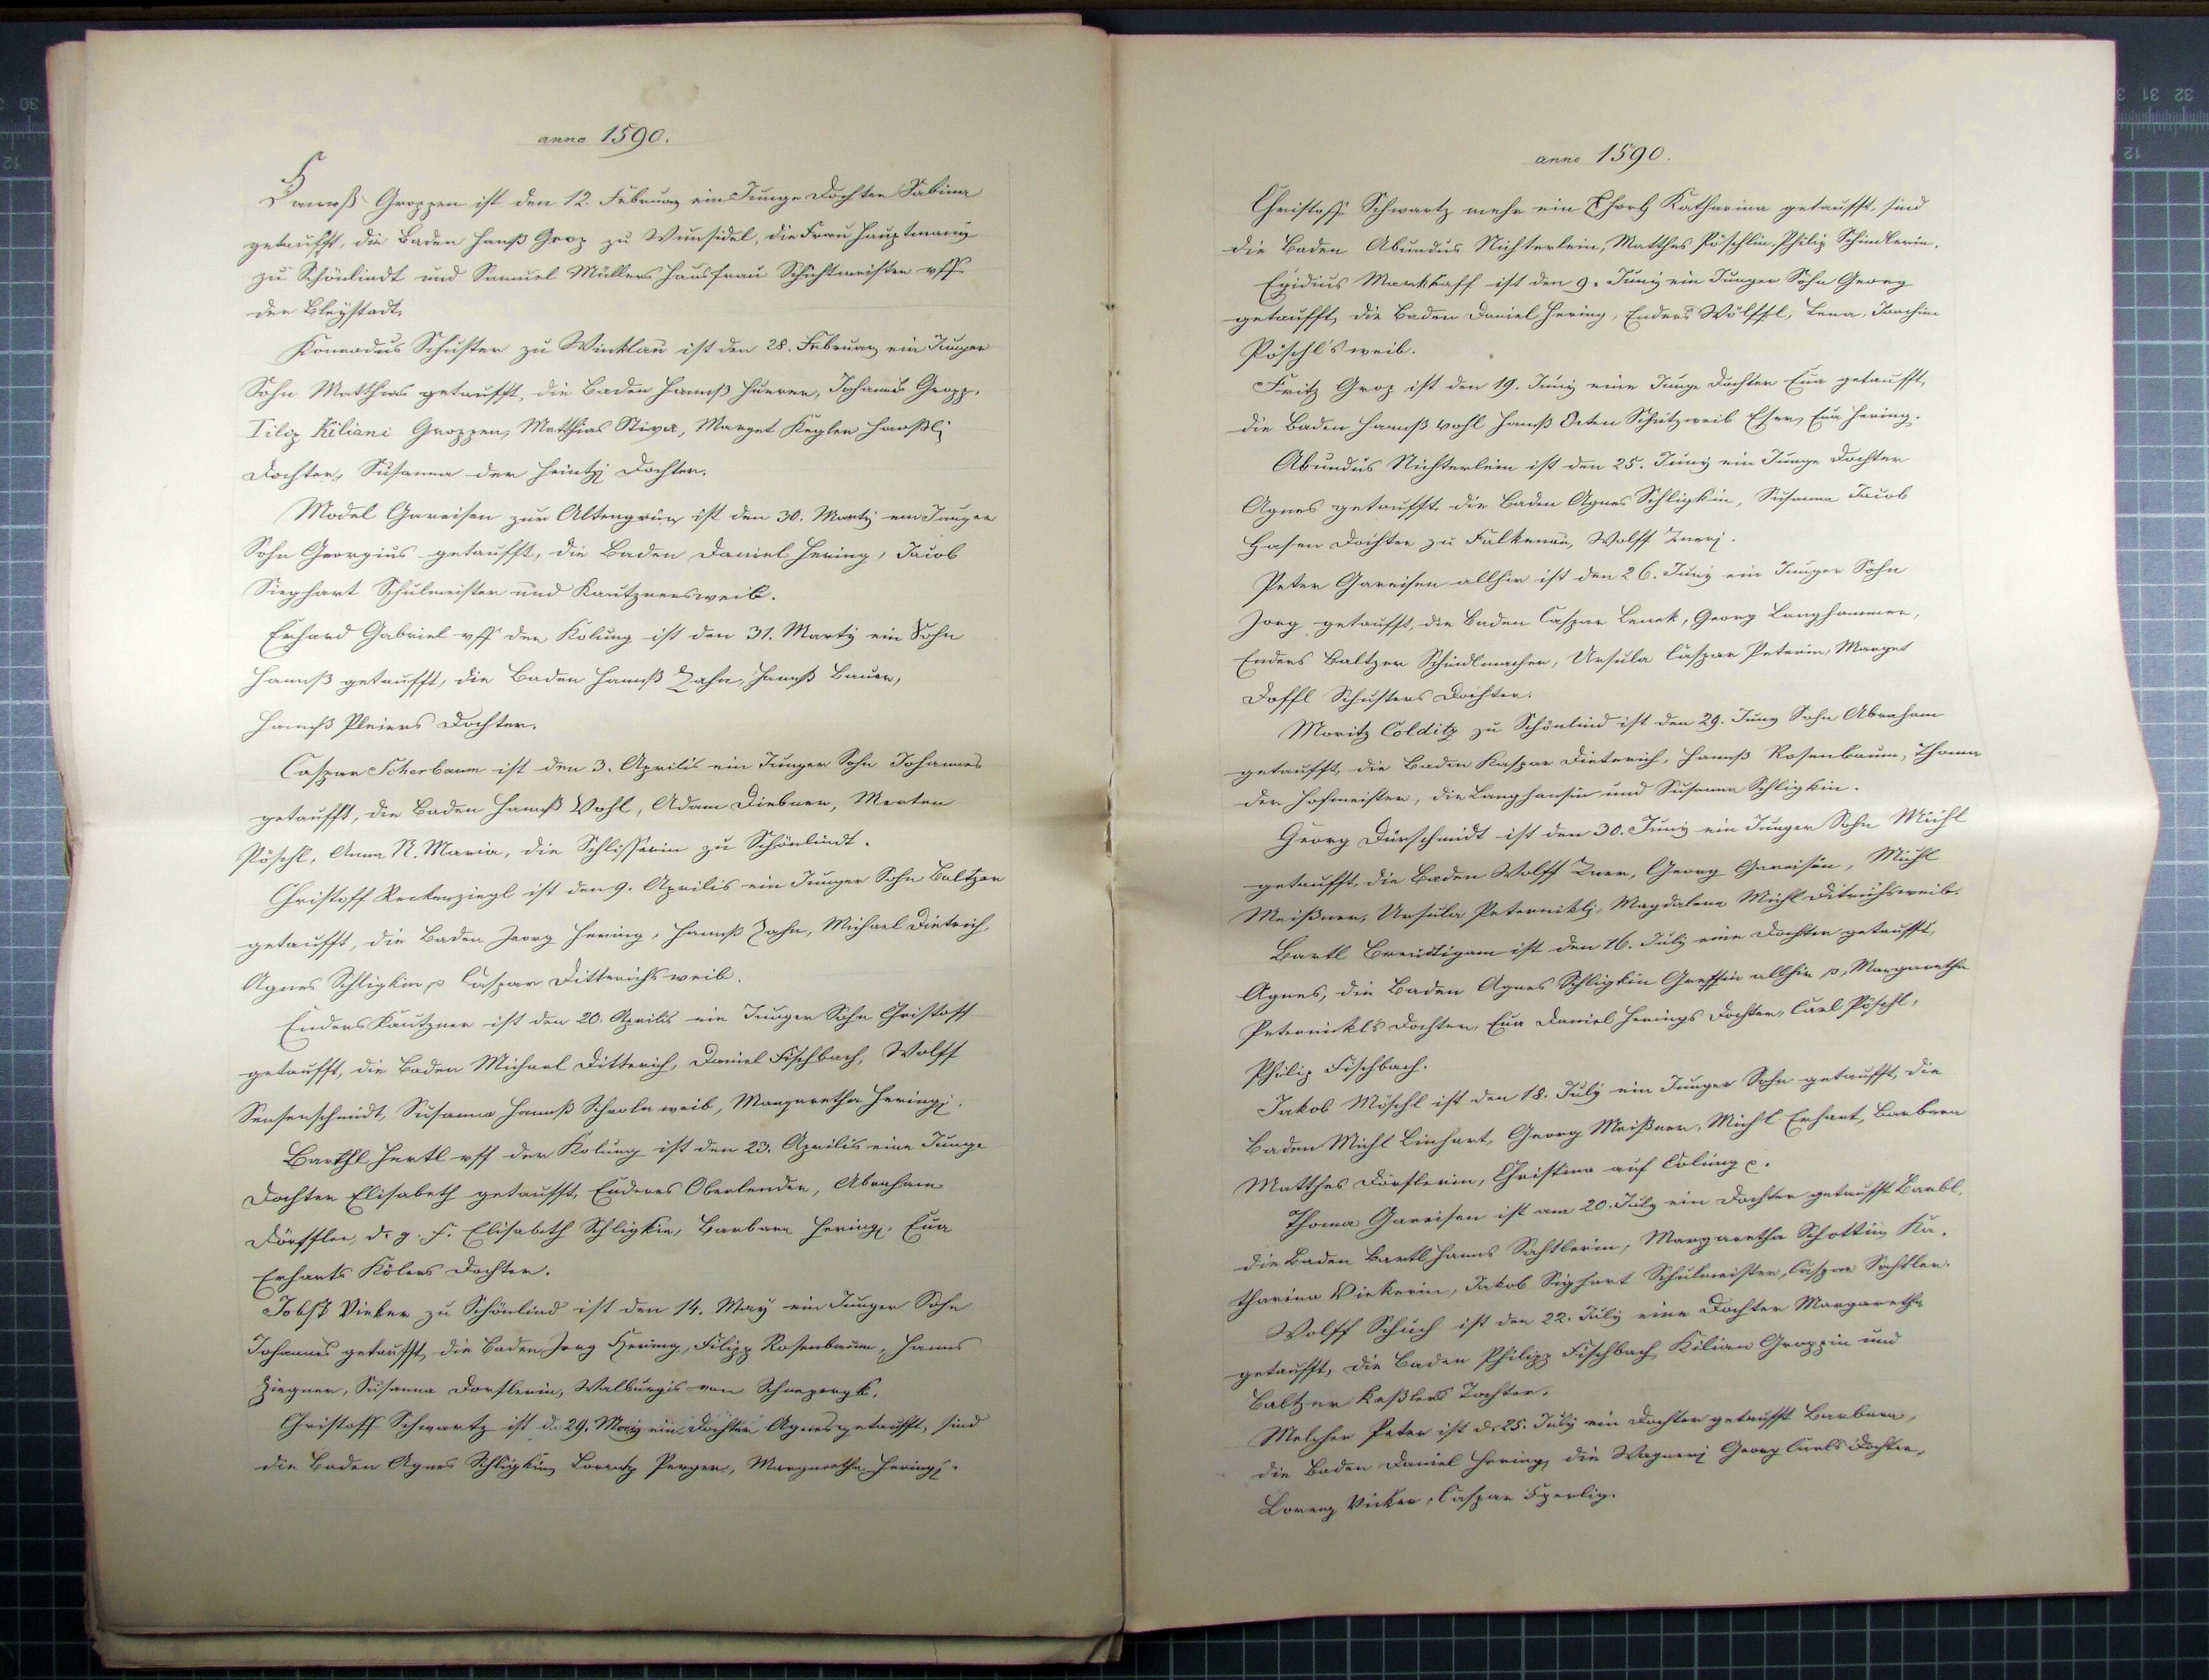 anno 1590.
Hannß Groppen ist den 12. Februarÿ ein Junge Dochter Sabina
getaufft, die Baden Hanß Grop zu Wunsidel, die Frau Hauptmannin
zu Schönlindt und Samuel Müllers Hausfrau Schichtmeister vff
der Bleÿstadt.
Konradus Schuster zu Winklau ist den 28. Februarÿ ein Junger
Sohn Matthias getaufft, die Baden Hannß Huerer, Johannes Gropp.
Filip Kiliani Groppen, Matthias Stiva, Marget Kegler
Dochter, Susanna der Dochter.
Model Gareisen zur Altengrün ist den 30. Martÿ ein Junger
Sohn Georgius getaufft, die Baden Daniel Hering, Jacob
Sieghart Schulmeister und Kautznersweib.
Erhard Gabriel vff der Kolung ist den 31. Martÿ ein Sohn
Hannß getaufft, die Baden Hannß Zahn, Hannß Bauer,
Hannß Pleiers Dochter.
Caspar Scherbaum ist den 3. Aprilis ein Junger Sohn Johannes
getaufft, die Baden Hannß Vohl, Adam Diebner, Merten
Pöschl, Anna N. Maria, die Schlisserin zu Schönlindt.
Christoff Reckenziegl ist den 9. Aprilis ein Junger Sohn Baltzer
getaufft, die Baden Georg Hering, Hannß Zahn, Michael Dietrich
Agnes Schligkin, Caspar Ditterichs weib.
Enders Kautzner ist den 20. Aprilis ein Junger Sohn Christoff
getaufft, die Baden Michael Ditterich, Daniel Fischbach, Wolff
Sensenschmidt, Susanna Hannß weib, Margaretha Hering.
Barthl Hertl vff der Kolung ist den 23. Aprilis eine Junge
Dochter Elisabeth getaufft, Enderes Oberlender, Abraham
Dörffler, d. g. F. Elisabeth Schligkin, Barbara Hering, Eua
Erharts Kölers Dochter.
Jobst Vieker zu Schönlind ist den 14. Maÿ ein Junger Sohn
Johannes getaufft, die Baden Jorg Hering, Filipp Rosenbaum, Hanns
Ziegner, Susanna Dorflerin, Walburgis von
Christoff Schwartz ist d. 29. Maÿ ein Dochter Agnes getaufft, sind
die Baden Agnes Schligkin, Lorentz Perger, Margaretha Hering.
anno 1590.
Christoff Schwartz mehr ein Katharina getaufft, sind
die Baden Abundus Nichterlein, Matthes Pöschlin, Philip Schindlerin.
Egidius Markhaff ist den 9. Junÿ ein Junger Sohn Georg
getaufft, die Baden Daniel Hering, Enders Wölffl, Lena, Joachim
Pöschl's weib.
Fritz Grop ist den 19. Junÿ eine Junge Dochter Eua getaufft,
die Baden Hannß Vohl Hannß Schützweib Eua Hering.
Abundus Nichterlein ist den 25. Junÿ ein Junge Dochter
Agnes getaufft, die Baden Agnes Schligkin, Susanna Jacob
Hasen Dochter zu Falkenau, Wolff
Peter Gareisen allhie ist den 26. Junÿ ein Junger Sohn
Jorg getaufft, die Baden Caspar Lenck, Georg Langhammer,
Enders Baltzer Schindlmacher, Ursula Caspar Peterin, Marget
Doffl Schusters Dochter.
Moritz Colditz zu Schönlind ist den 29. Junÿ Sohn Abraham
getaufft, die Baden Kaspar Dieterich, Hannß Rosenbaum, Thoma
der Hofmeister, die Langhansin und Susanna Schligkin.
Georg Dürschmidt ist den 30. Junÿ ein Junger Sohn Michl
getaufft, die Baden Wolff Georg Gareisen, Michl
Meißner, Ursula Magdalena Michl Ditrichsweib.
Bartl Breudigam ist den 16. Julÿ eine Dochter getaufft,
Agnes, die Baden Agnes Schligkin Greffin allhie, Margaretha
Peternickls Dochter, Eua Daniel Herings Dochter, Carl Pöschl,
Philip Fischbach.
Jakob Möschl ist den 18. Julÿ ein Junger Sohn getaufft, die
Baden Michl Linhart, Georg Meißner, Michl Erhart, Barbara
Matthes Dörflerin, Christina auf Colung.
Thoma Gareisen ist am 20. Julÿ ein Dochter getaufft Barbl,
die Baden Bartl Hanns Margaretha Schottin, Ka-
tharina Viekerin, Jakob Sighart Schulmeister, Caspar
Wolff Schuch ist den 22. Julÿ eine Dochter Margaretha
getaufft, die Baden Philipp Fischbach, Kilian Groppin und
Baltzer Keßlers Tochter.
Melcher Peter ist d. 25. Julÿ ein Dochter getaufft Barbara,
die Baden Daniel Hering, die Wagneri Georg Carls Dochter,
Lorenz Vieker, Caspar Sperlig.